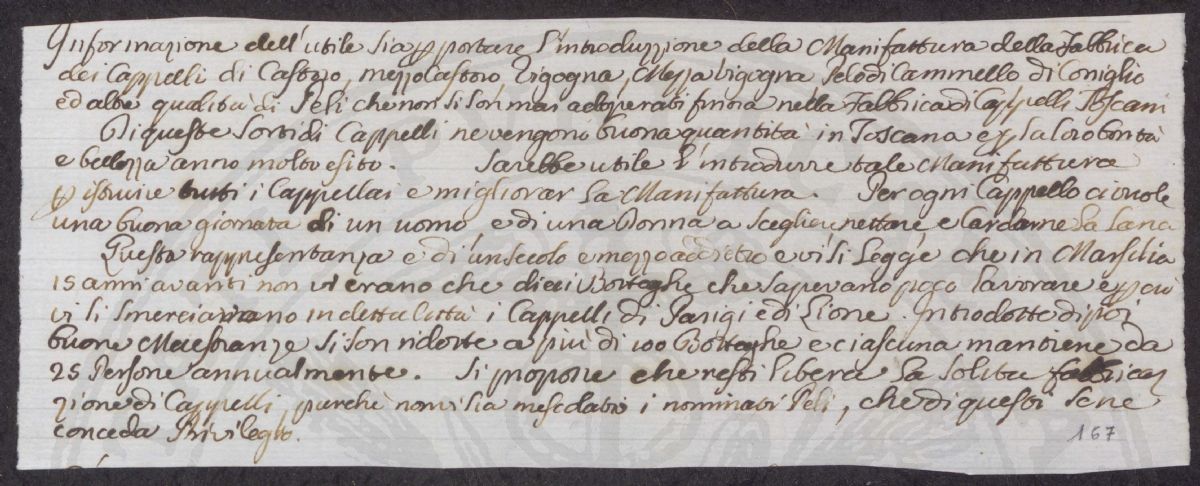 Informazione dell'utile sia p portare l'introduzzione della Manifattura della Fabbrica
dei Cappelli di Castoro, mezzo Castoro Vigogna, Mezza Vigogna Pelo di Cammello di Coniglio
ed altre qualità di Peli che non si son mai adoperati finora nella Fabbrica di Cappelli Toscani
Di queste Sorti di Cappelli ne vengono buona quantità in Toscana e p la loro bontà
e bellezza anno molto esito. Sarebbe utile l'introdurre tale Manifattura
p istruire tutti i Cappellai e migliorar la Manifattura. Per ogni Cappello ci vuole
una buona giornata di un uomo e di una Donna a sceglier nettare e Cardarne la Lana
Questa rappresentanza e di un secolo e mezzo addietro e vi si Legge che in Marsilia
15 anni avanti non vi erano che dieci Botteghe che sapevano poco lavorare e p ciò
vi si smerciavano in detta Città i Cappelli di Parigi e di Lione. Introdotte di poi
buone Maestranze si son ridotte a più di 100 Botteghe e ciascuna mantiene da
25 Persone annualmente. Si propone che resti libera la solita fabbrica
zione di Cappelli, purchè non vi sia mescolato i nominati Peli, che di questi se ne
conceda Privilegio.
167